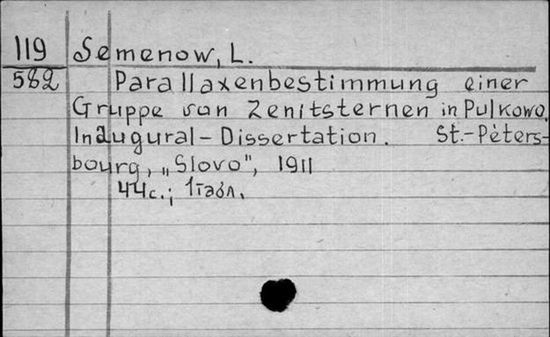 119
582
Semenow, L.
Parallaxenbestimmung einer
Gruppe von Zenitsternen in Pulkowo.
Inaugural-Dissertation. St.-Péters-
bourg, „Slovo", 1911
44с.; 1табл.